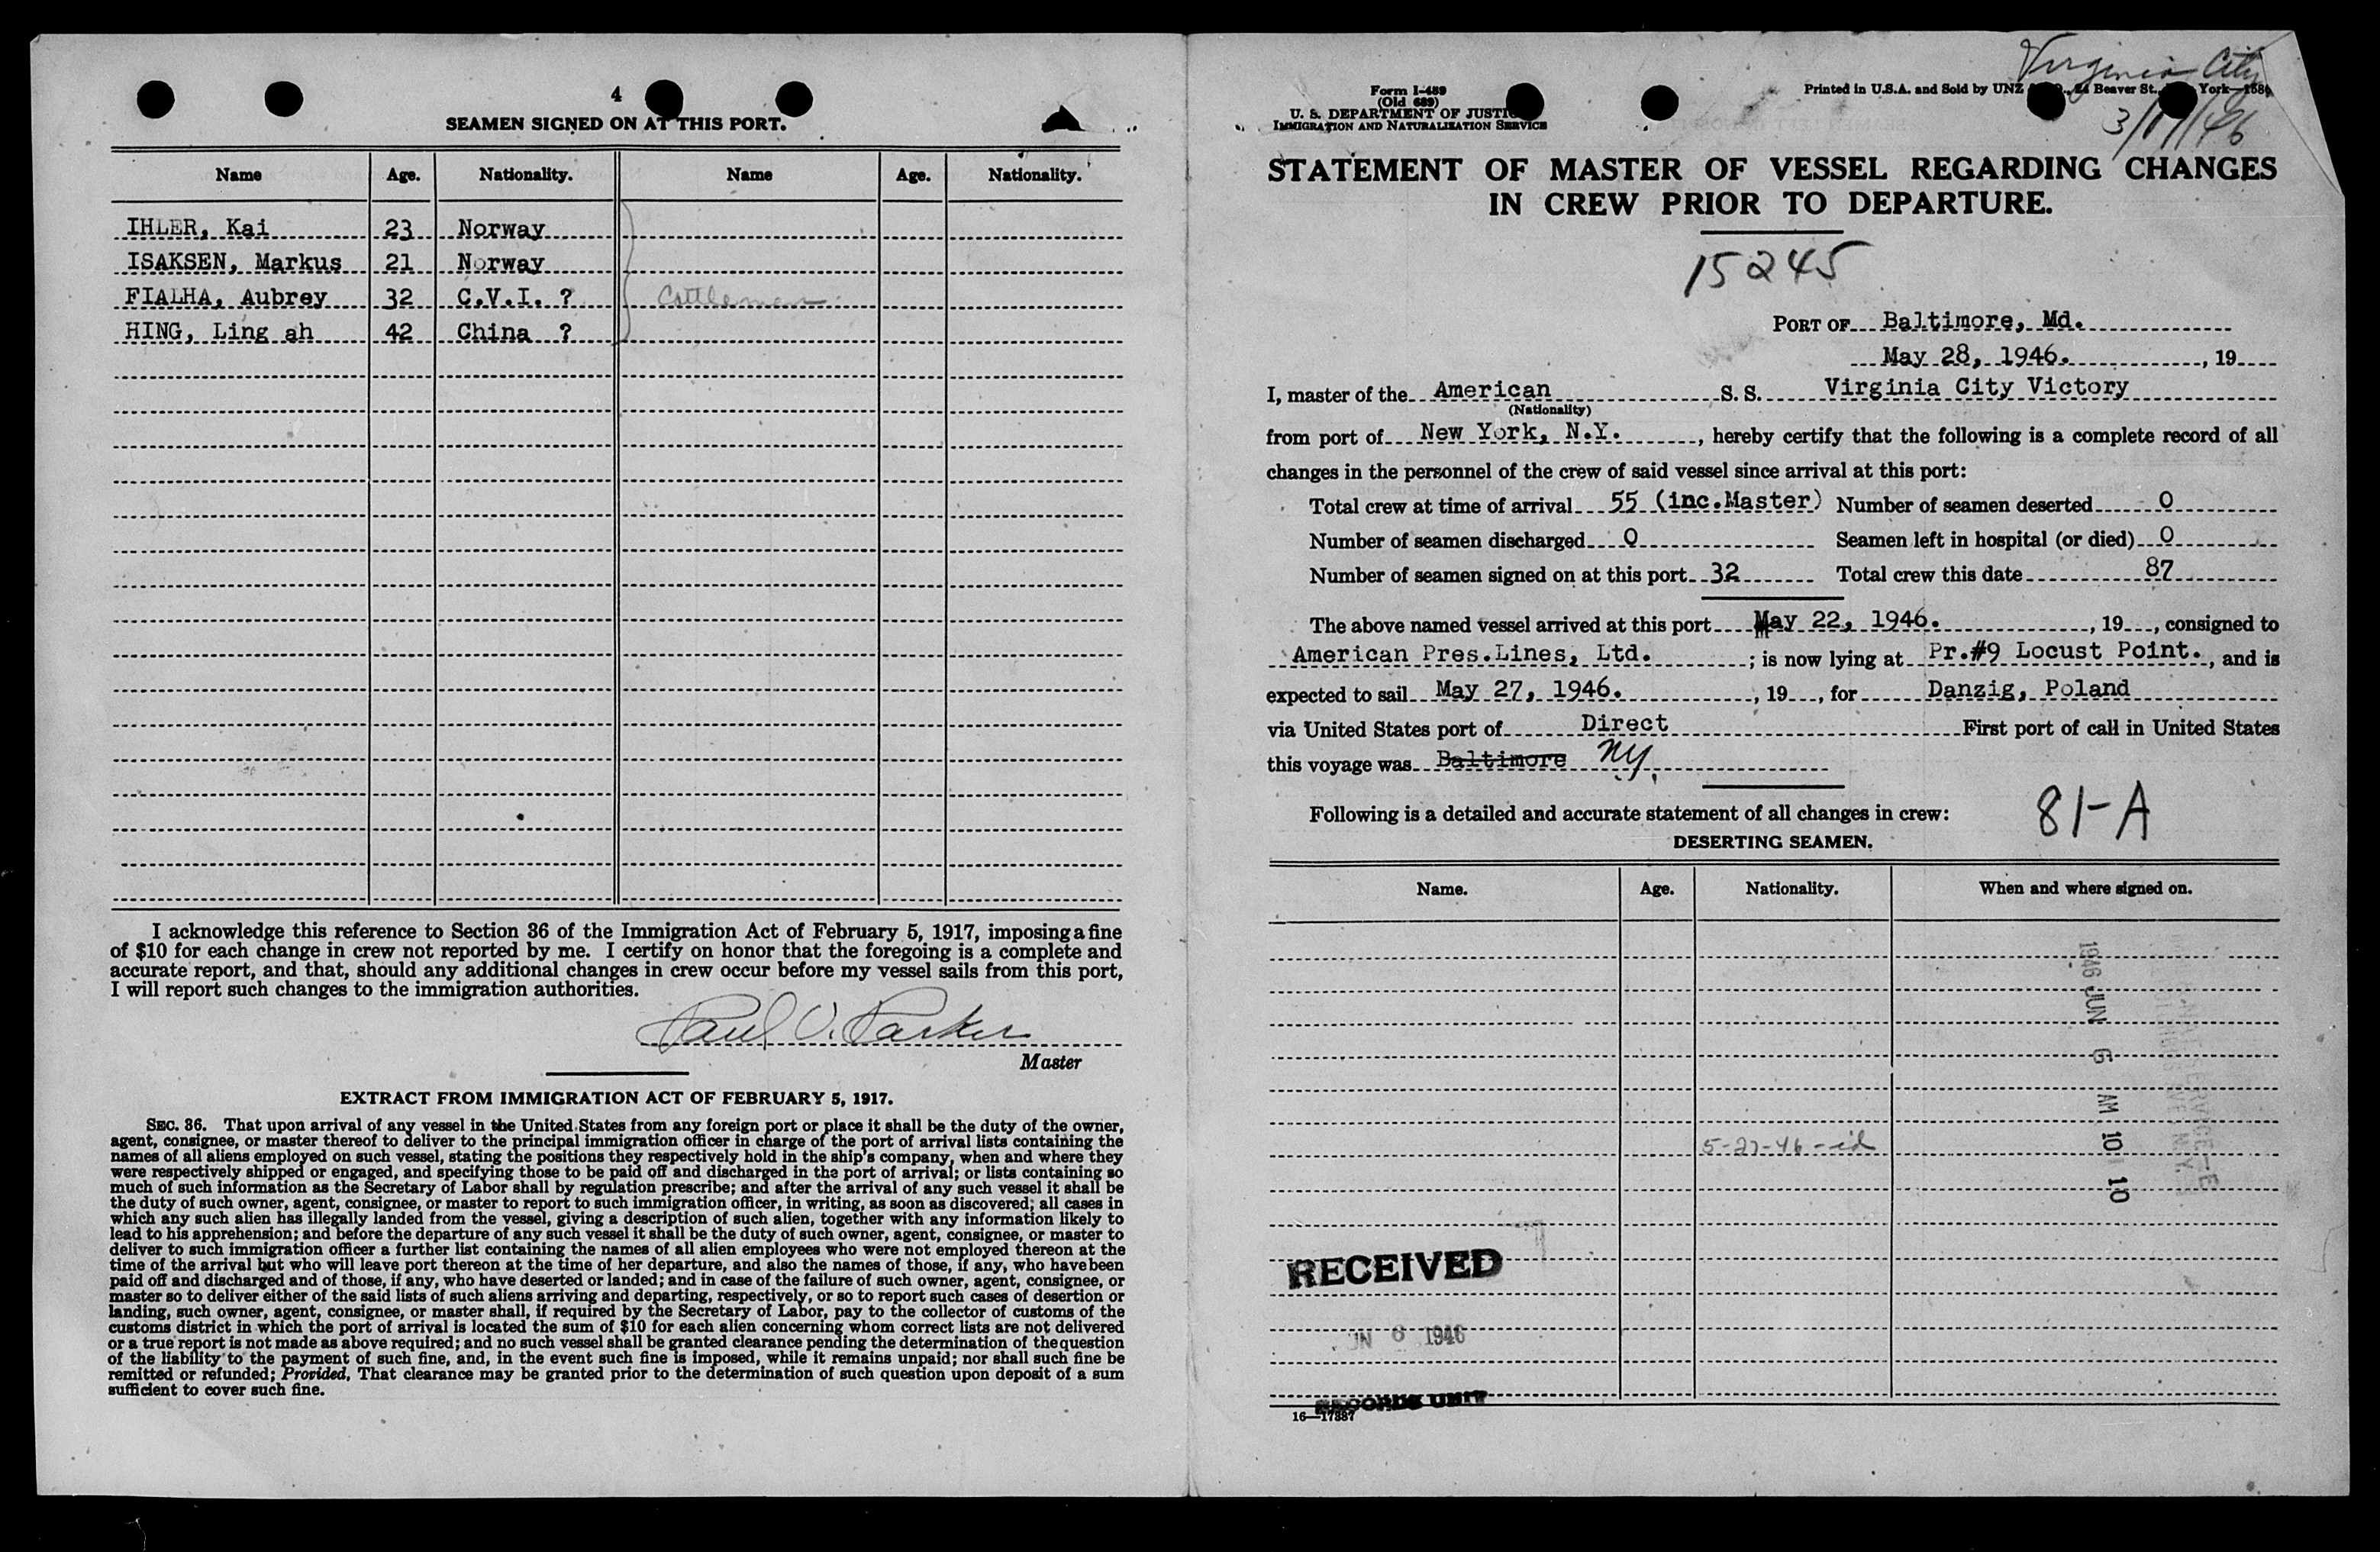 4
SEAMEN SIGNED ON AT THIS PORT.
Name Age. Nationality. Name Age. Nationality.
IHLER, Kai 23 Norway
ISAKSEN, Markus 21 Norway
FIALHA, Aubrey 32 C.V.I. ? Cattlemen
HING, Ling ah 42 China ?
I acknowledge this reference to Section 36 of the Immigration Act of February 5, 1917, imposing a fine
of $10 for each change in crew not reported by me. I certify on honor that the foregoing is a complete and
accurate report, and that, should any additional changes in crew occur before my vessel sails from this port,
I will report such changes to the immigration authorities.
Paul V. Parker
Master
EXTRACT FROM IMMIGRATION ACT OF FEBRUARY 5, 1917.
SEC. 36. That upon arrival of any vessel in the United States from any foreign port or place it shall be the duty of the owner,
agent, consignee, or master thereof to deliver to the principal immigration officer in charge of the port of arrival lists containing the
names of all aliens employed on such vessel, stating the positions they respectively hold in the ship's company, when and where they
were respectively shipped or engaged, and specifying those to be paid off and discharged in the port of arrival; or lists containing so
much of such information as the Secretary of Labor shall by regulation prescribe; and after the arrival of any such vessel it shall be
the duty of such owner, agent, consignee, or master to report to such immigration officer, in writing, as soon as discovered, all cases in
which any such alien has illegally landed from the vessel, giving a description of such alien, together with any information likely to
lead to his apprehension; and before the departure of any such vessel it shall be the duty of such owner, agent, consignee, or master to
deliver to such immigration officer a further list containing the names of all alien employees who were not employed thereon at the
time of the arrival but who will leave port thereon at the time of her departure, and also the names of those, if any, who have been
paid off and discharged and of those, if any, who have deserted or landed; and in case of the failure of such owner, agent, consignee, or
master so to deliver either of the said lists of such aliens arriving and departing, respectively, or so to report such cases of desertion or
landing, such owner, agent, consignee, or master shall, if required by the Secretary of Labor, pay to the collector of customs of the
customs district in which the port of arrival is located the sum of $10 for each alien concerning whom correct lists are not delivered
or a true report is not made as above required; and no such vessel shall be granted clearance pending the determination of the question
of the liability to the payment of such fine, and, in the event such fine is imposed, while it remains unpaid; nor shall such fine be
remitted or refunded; Provided, That clearance may be granted prior to the determination of such question upon deposit of a sum
sufficient to cover such fine.
Virginia City
Form I-489
(Old 689)
U. S. DEPARTMENT OF JUSTI
IMMIGRATION AND NATURALIZATION SERVICE
Printed in U.S.A. and Sold by UNZ Beaver St., York
STATEMENT OF MASTER OF VESSEL REGARDING CHANGES
IN CREW PRIOR TO DEPARTURE.
15245
PORT OF Baltimore, Md.
May 28, 1946. , 19
I, master of the American S. S. Virginia City Victory
(Nationality)
from port of New York, N.Y. , hereby certify that the following is a complete record of all
changes in the personnel of the crew of said vessel since arrival at this port:
Total crew at time of arrival 55 (inc.Master) Number of seamen deserted 0
Number of seamen discharged 0 Seamen left in hospital (or died) 0
Number of seamen signed on at this port 32 Total crew this date 87
The above named vessel arrived at this port May 22, 1946. , 19 , consigned to
American Pres.Lines, Ltd. ; is now lying at Pr.#9 Locust Point. , and is
expected to sail May 27, 1946. , 19 , for Danzig, Poland
via United States port of Direct First port of call in United States
this voyage was Baltimore NY.
Following is a detailed and accurate statement of all changes in crew: 81-A
DESERTING SEAMEN.
Name. Age. Nationality. When and where signed on.
1946 JUN 6 AM 10 10
5-27-46-id
RECEIVED
UN 6 1946
RECORDS UNIT
16—17887